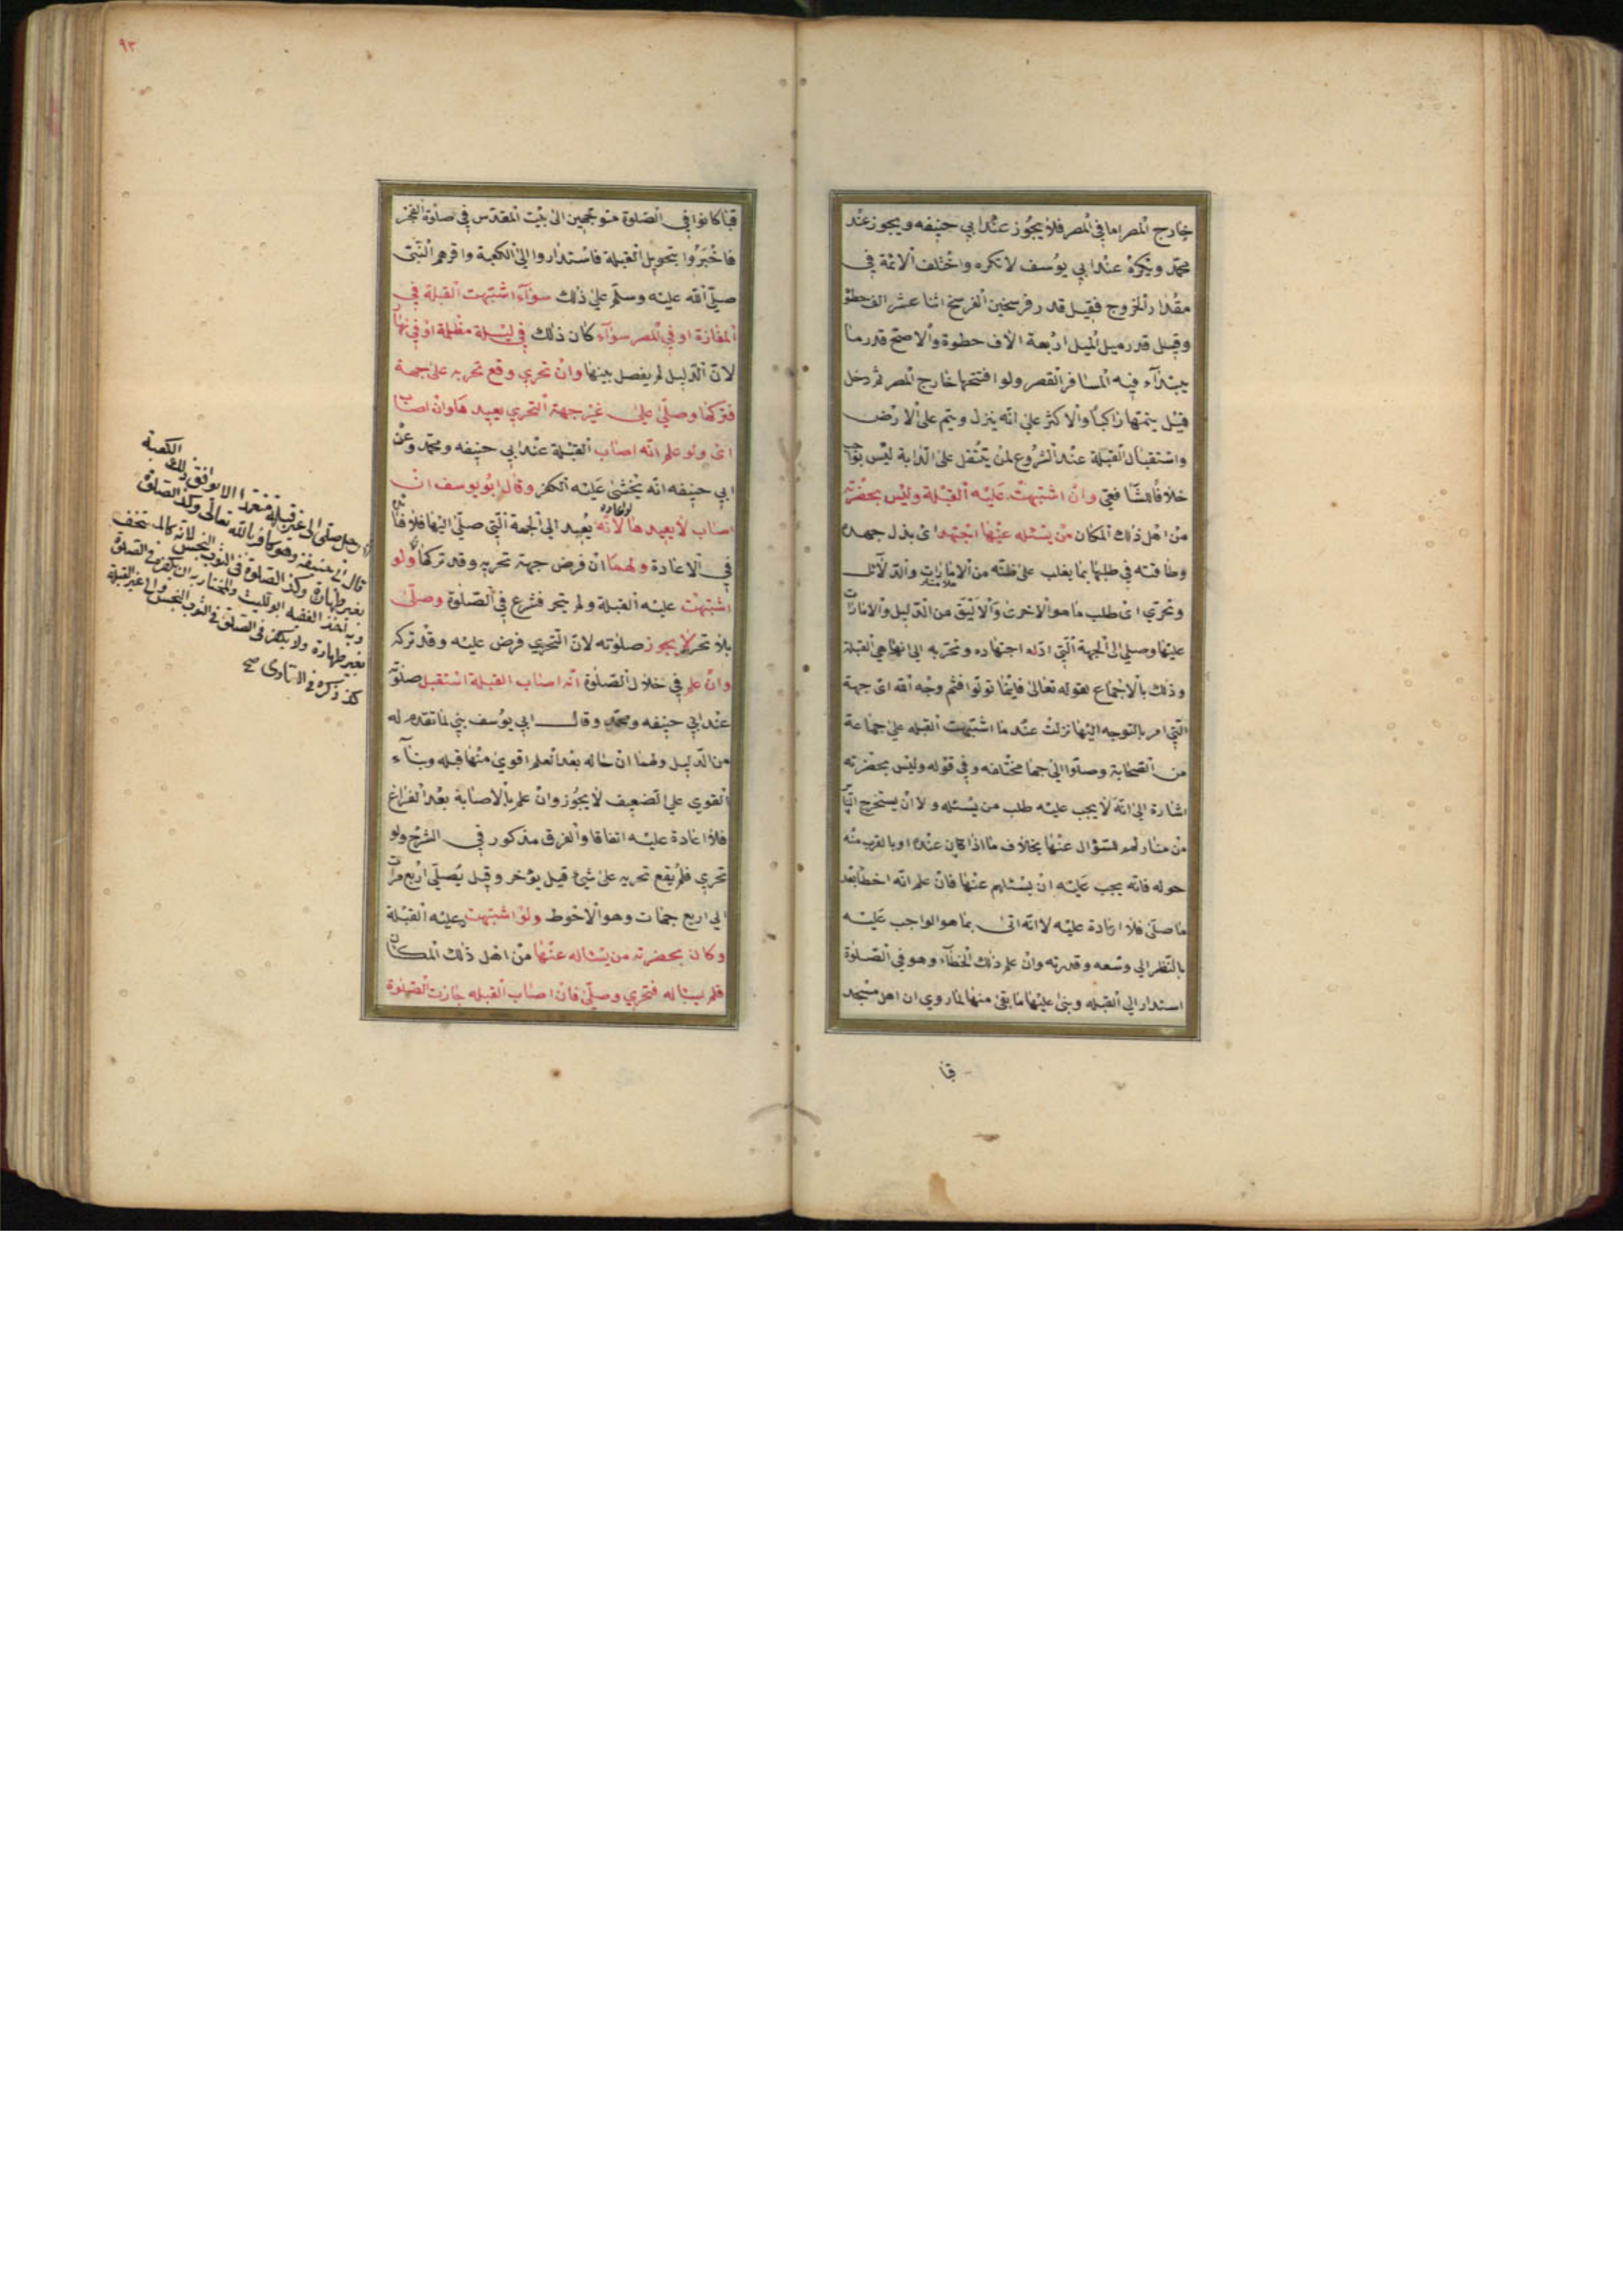 خارج المصر اما في المصر فلا يجوز عند ابي حنيفه ويجوز عند
محمد ويكره عند ابي يوسف لا تكره واختلف الائمة في
مقدار الخروج فقيل قدر فرسخين الفرسخ اثنا عشر الف خطو
وقيل قدر ميل الميل اربعة الاف خطوة والاصح قدر ما
يبتدآء فيه المسافر القصر ولو افتتحها خارج المصر ثم دخل
قيل يتمتها راكبا والاكثر على انه ينزل ويتم على الارض
واستقبال القبلة عند الشروع لمن يتنفل على الدابة ليس بواجب
خلافا للشافعي وان اشتبهت عليه القبلة وليس بحضرته
من اهل ذلك المكان من يسئله عنها اجتهد اى بذل جهده
وطاقته في طلبها بما يغلب على ظنه من الامارات والدلآئل
وتحري اى طلب ما هو الاحرى والاليق من الدليل والامارات
عليها وصلي الى الجهة التي ادله اجتهاده وتحريه الى انها هي القبلة
وذلك بالاجماع لقوله تعالى فاينما تولوا فثم وجه الله اى جهة
التي امر بالتوجه اليها نزلت عند ما اشتبهت القبله على جماعة
من الصحابة وصلوا الى جهات مختلفه وفي قوله وليس بحضرته
اشارة الى انه لا يجب عليه طلب من يسئله ولا ان يستخرج
من منازلهم للسؤال عنها بخلاف ما اذا كان عنده او بالقرب منه
حوله فانه يجب عليه ان يسئلهم عنها فان علم انه اخطأ بعد
ما صلى فلا اعادة عليه لانه اتى بما هو الواجب عليه
بالنظر الي وسعه وقدرته وان علم ذلك الخطآء وهو في الصلوة
استدار الي القبله وبنى عليها ما بقى منها لما روي ان اهل مسجد
قبا
٩٣
قبا كانوا في الصلوة متوجهين الى بيت المقدس في صلوة الفجر
فاخبروا بتحويل القبلة فاستداروا الى الكعبة واقرهم النبي
صلى الله عليه وسلم على ذلك سوآء اشتبهت القبلة في
المفازة او في المصر سوآء كان ذلك في ليلة مظلمة او في نهار
لان الدليل لم يفصل بينها وان تحري وقع تحريه على جهة
فتركها وصلى على غير جهة التحري يعيد ها وان اصاب
اى ولو علم انه اصاب القبلة عند ابي حنيفه ومحمد وعن
ابي حنيفه انه يخشى عليه الكفر وقال ابو يوسف ان
اصاب لا يعيد ها لانه لو اعاده يعيد الي الجهة التي صلى اليها فلا فائدة
في الاعادة ولهما ان فرض جهة تحريه وقد تركها ولو
اشتبهت عليه القبلة ولم يتحر فشرع في الصلوة وصلى
بلا تحر لا يجوز صلوته لان التحري فرض عليه وقد تركه
وان علم في خلال الصلوة انه اصاب القبلة استقبل صلوته
عند ابي حنيفه ومحمد وقال ابي يوسف يبني لما تقدم له
من الدليل ولهما ان حاله بعد العلم اقوى منها قبله وبنآء
القوي على الضعيف لا يجوز وان علم بالاصابة بعد الفراغ
فلا اعادة عليه اتفاقا والفرق مذكور في الشرح ولو
تحري فلم يقع تحريه على شئ قيل يؤخر وقيل يصلي اربع مرات
الي اربع جهات وهو الاحوط ولو اشتبهت عليه القبلة
وكان بحضرته من يسئاله عنها من اهل ذلك المكان
فلم يسئاله فتحري وصلى فان اصاب القبله جازت الصلوة
رجل صلى الى غير قبلة متعمدا الا يوافق ذلك الكعبة
قال ابي حنيفة وهو كافر بالله تعالى وكذ الصلوة
بغير طهارة وكذ الصلوة في الثوب النجس لانه كالمستخف
وبه اخذ الفقيه ابو الليث والمختار به ان يكفر في الصلوة
بغير طهارة ولا يكفر في الصلوة في الثوب النجس والى غير القبلة
كذ ذكره في الفتاوى صح